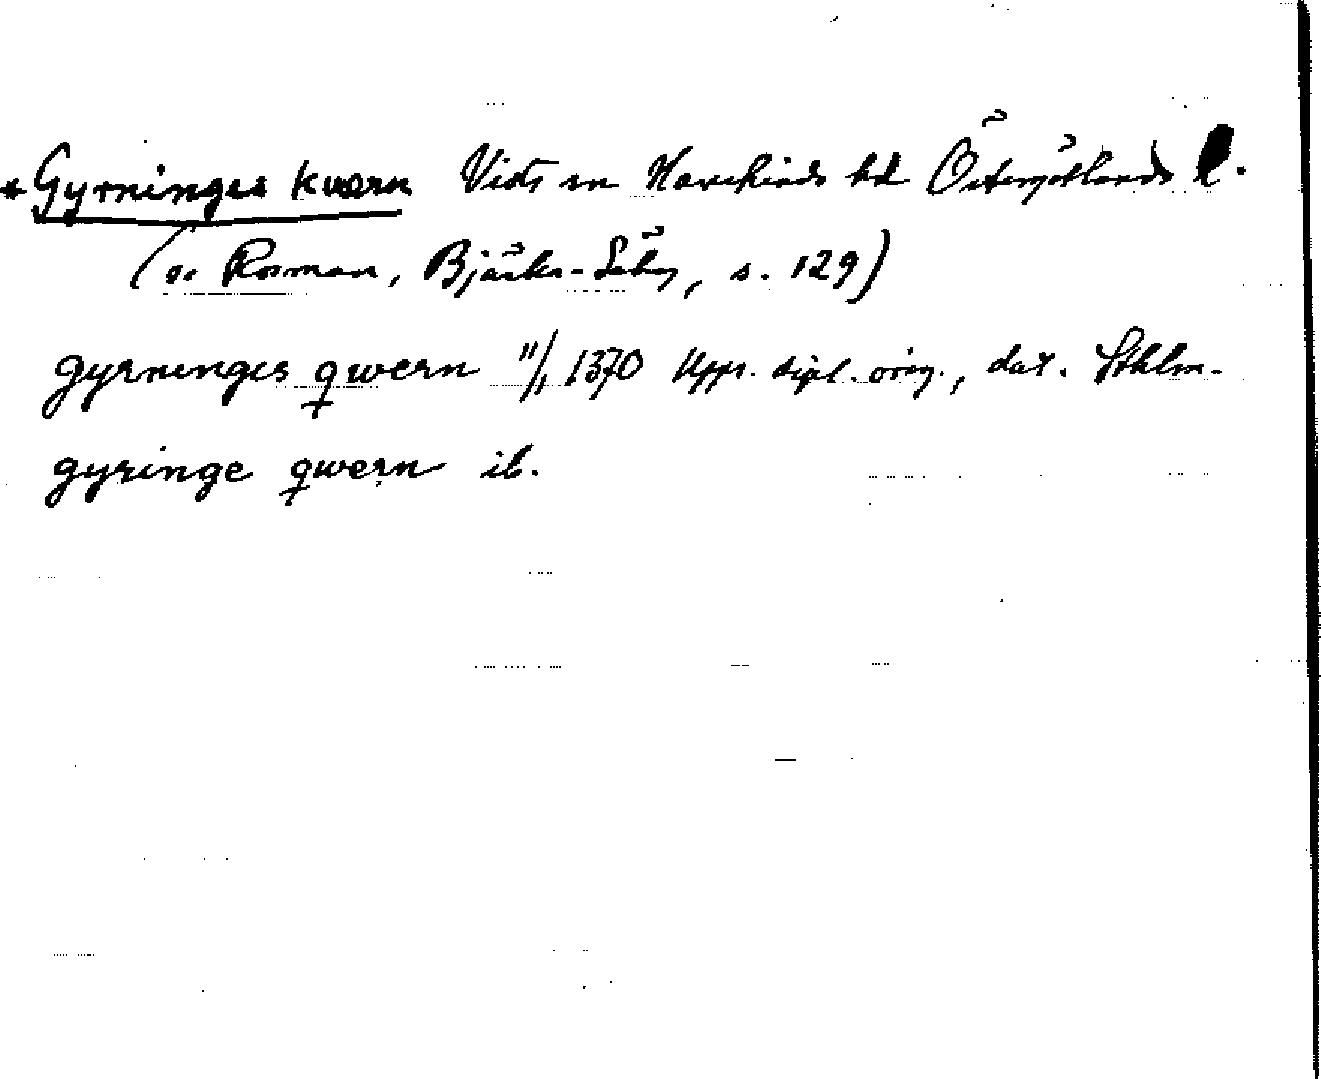 * Gyrninges kværn Vists sn Hanekinds hd Östergötlands l.
(se Rosman, Bjärka-Säby, s. 129)
gyrninges qwern 11/1 1370 Upps. dipl. orig., dat. Sthlm.
gyringe qwern ib.